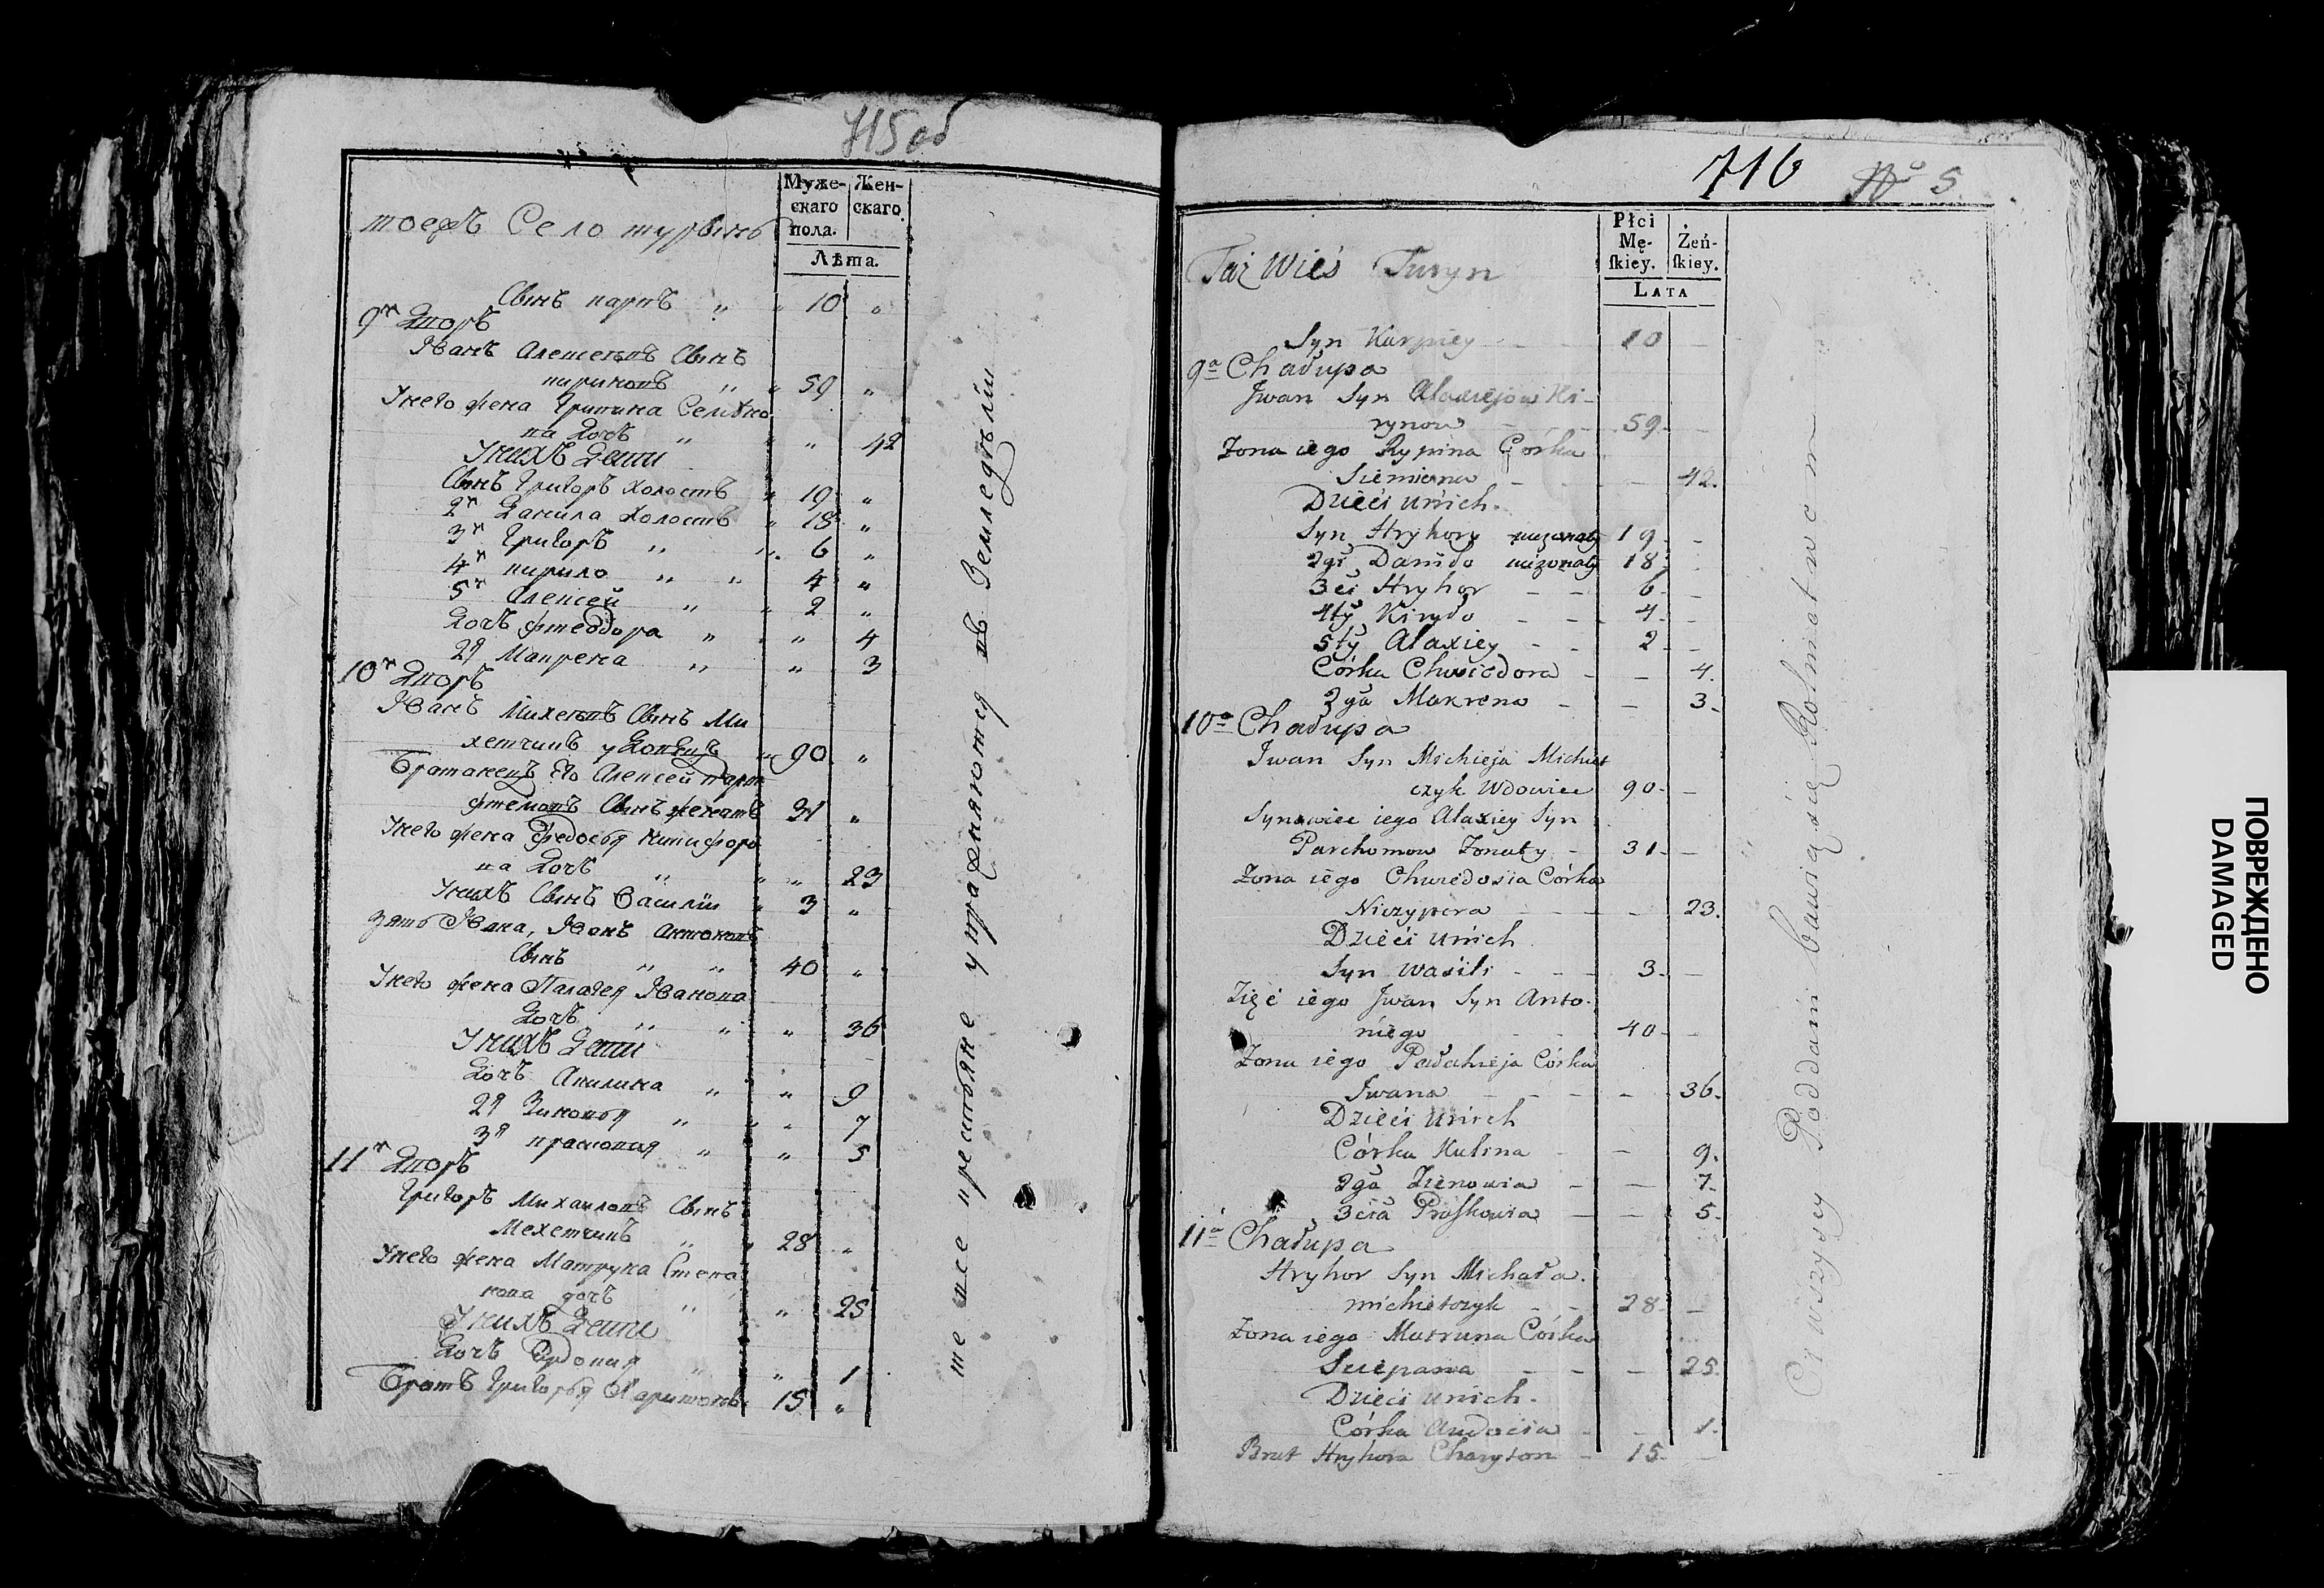 715 об
тоежъ Село турынь
Муже-
скаго
пола.
Жен-
скаго.
Лѣта.
Сынъ карпъ " " 10 "
9й Дворъ
Иванъ Алексеевъ Сынъ
кириновъ " " 59 "
Унего жена Грипина Семіоно
ва дочъ " " " 42
Унихъ дети
Сынъ Григоръ холостъ " 19 "
2й Данила холостъ " 18 "
3й Григоръ " " 6 "
4й кирило " " 4 "
5й Алексей " " 2 "
дочъ фтеодора " " " 4
2я Макрена " " 3
10й Дворъ
Иванъ Михеевъ Сынъ Ми
хетчикъ удовецъ " 90 "
Братанецъ Его Алексей парт
фтемовъ Сынъ женатъ 31 "
Унего жена Федосья Никифоро
ва дочъ " " " 23
Унихъ Сынъ Василіи " 3 "
зять Ивана, Иванъ Антоновъ
Сынъ " " 40 "
Унего жена Палагея Иванова
дочъ " " " 36
Унихъ дети
дочъ Акилина " " 9
2я Зиновья " " " 7
3я прасковия " " 5
11й Дворъ
Григоръ Михаиловъ Сынъ
Мехетчикъ " " 28 "
Унего жена Матруна Степа
нова дочъ " " 25
Унихъ дети
дочъ Евдокия " " 1
Братъ Григорья Харитонъ 15 "
те все крестьяне упражняются въ Земледѣліи
716 № 5
Taż Wieś Turyn
Płci
Mę-
skiey.
Żeń-
skiey.
LATA
Syn Karpiey – – 10 –
9a Chałupa
Jwan Syn Alaxiejow Ki-
rynow – – 59. –
Żona iego Rypina Córka
Siemiona – – – 42.
Dzieci unich.
Syn Hryhory nieżonaty 19 –
2gi Daniło nieżonaty 18 –
3ci Hryhor – – 6. –
4ty Kiryło – – 4. –
5ty Alaxiey – – 2. –
Córka Chwiedora – – 4.
2ga Makrena – – 3.
10a Chałupa
Jwan Syn Michieja Michiet
czyk Wdowiec 90. –
Synowiec iego Alaxiey Syn
Parchomow Żonaty – 31. –
Żona iego Chwiedosia Córka
Niczypora – – – 23.
Dzieci unich
Syn Wasili – – 3. –
Zięć iego Jwan Syn Anto-
niego – – 40. –
Żona iego Pałahieja Córka
Jwana – – – 36.
Dzieci unich
Córka Kulina – – 9.
2ga Zienowia – – 7.
3cia Praskowia – – 5.
11a Chałupa
Hryhor Syn Michała.
michietczyk – – 28. –
Żona iego Matruna Córka
Sciepana – – – 25.
Dzieci unich.
Córka Audocia – – 1.
Brat Hryhora Charyton – 15. –
Ci wszyscy Poddani bawią się Rolnictwem
ПОВРЕЖДЕНО
DAMAGED